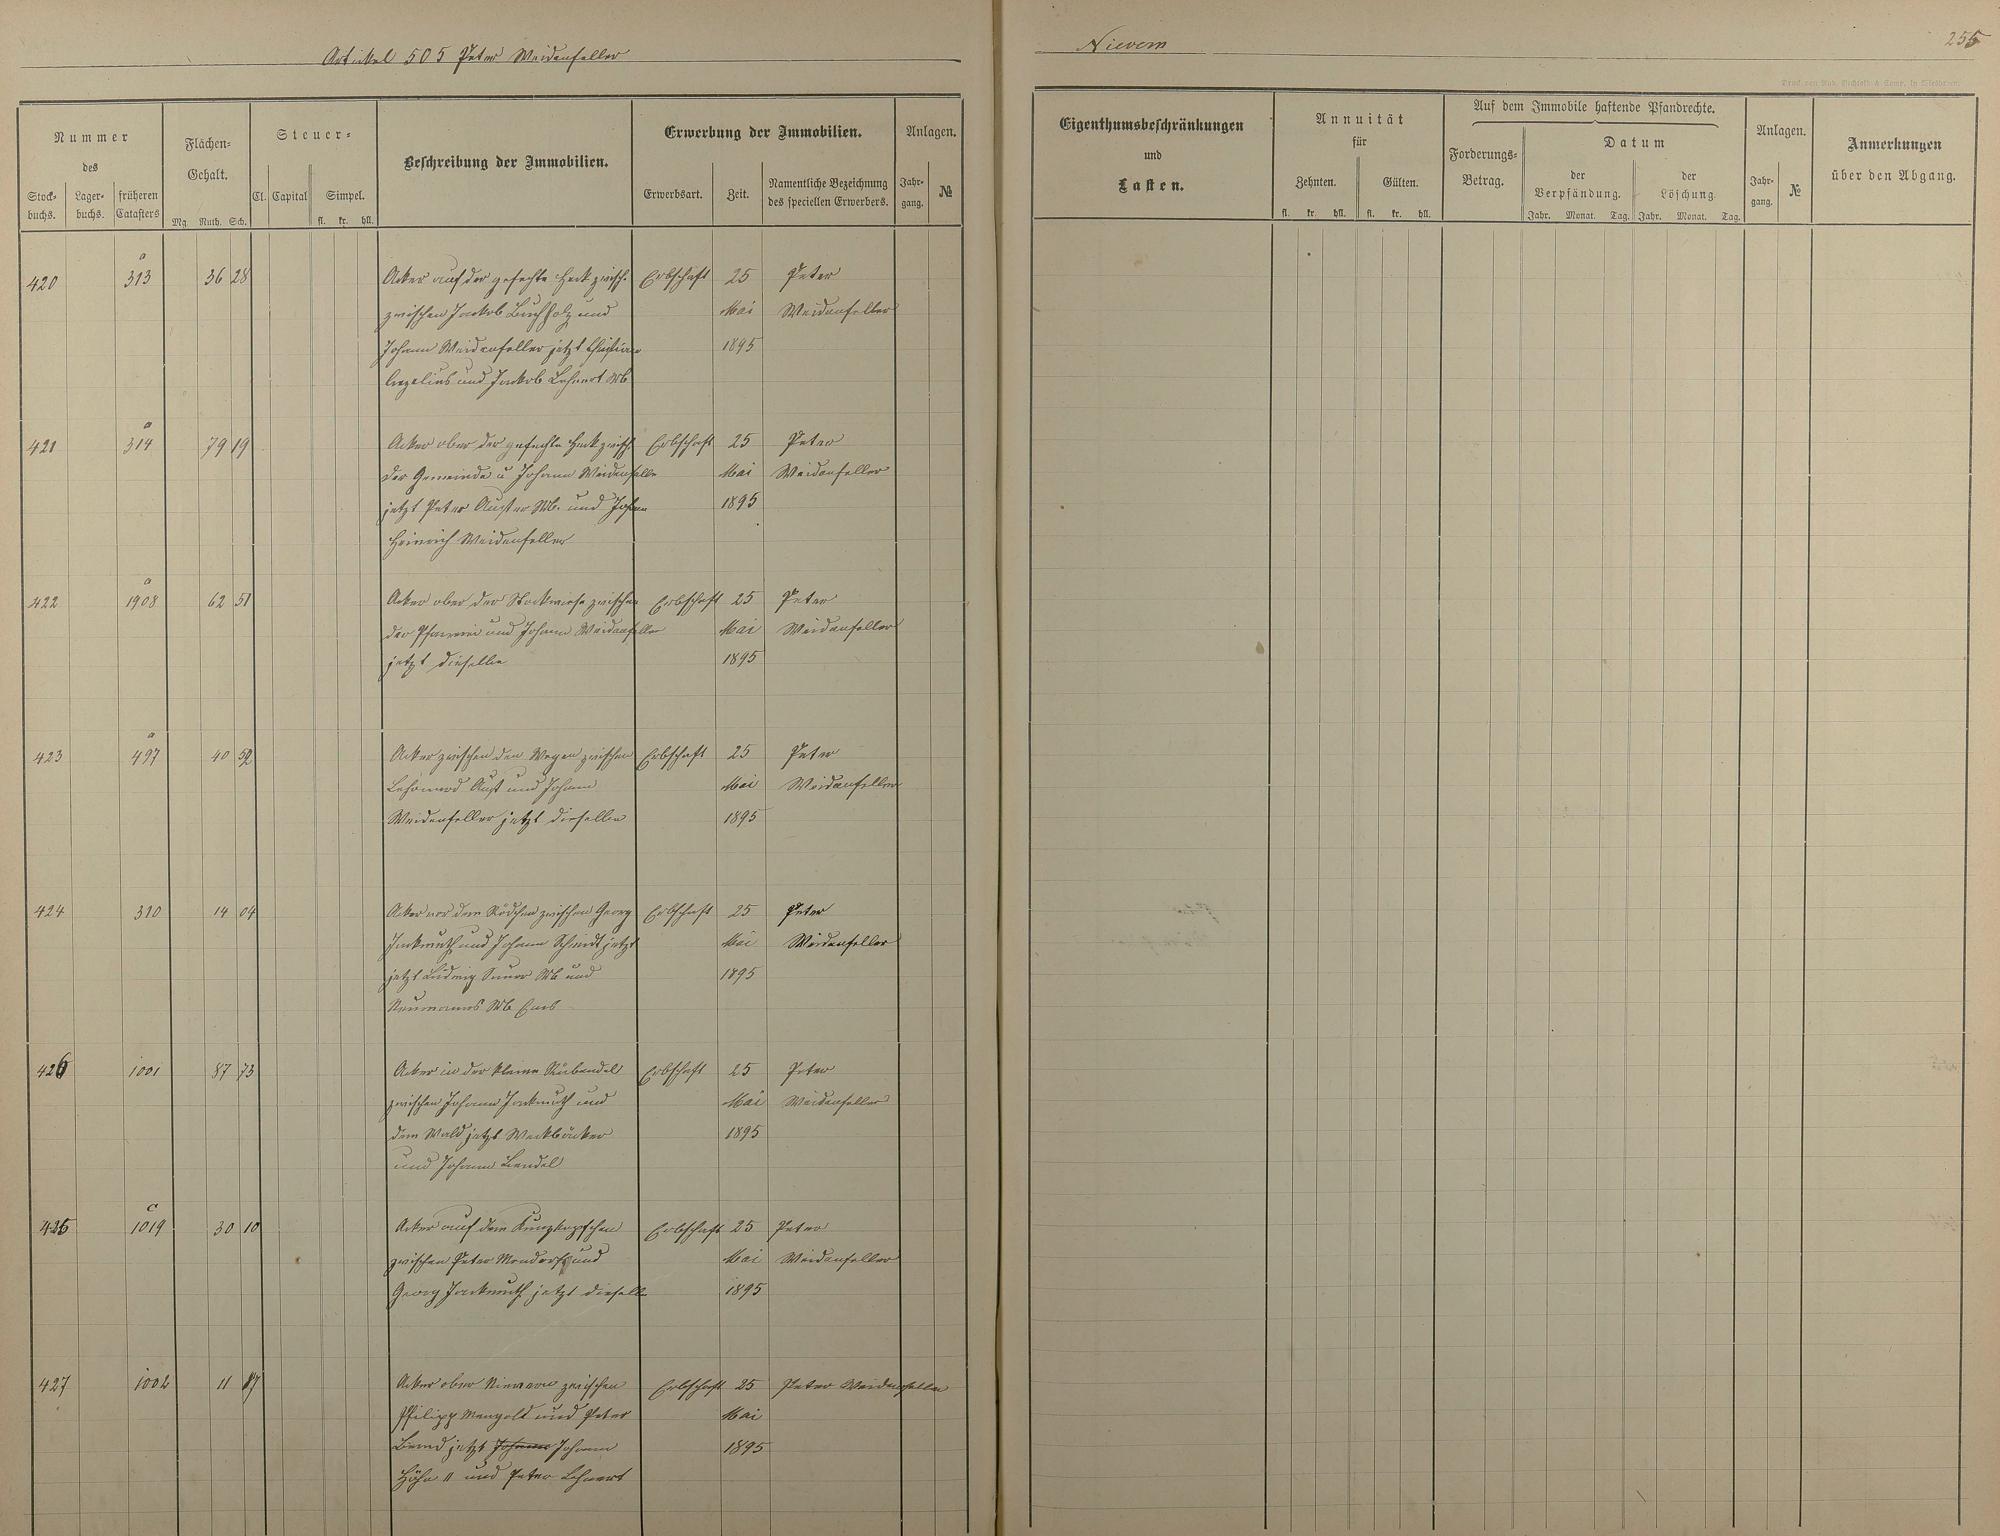 Artikel 505 Peter Weidenfeller
Nievern
255
Nummer
des
Stock-
buchs.
Lager-
buchs.
früheren
Catasters
Flächen-
Gehalt.
Mg. Ruth. Sch.
Steuer-
Cl.
Capital
Simpel.
fl. kr. hll.
Beschreibung der Immobilien.
Erwerbung der Immobilien.
Erwerbsart.
Zeit.
Namentliche Bezeichnung
des speciellen Erwerbers.
Anlagen.
Jahr-
gang.
№
Eigenthumsbeschränkungen
und
Lasten.
Annuität
für
Zehnten.
Gülten.
fl. kr. hll. fl. kr. hll.
Auf dem Immobile haftende Pfandrechte.
Forderungs-
Betrag.
Datum
der
Verpfändung.
der
Löschung.
Jahr. Monat. Tag. Jahr. Monat. Tag.
Anlagen.
Jahr-
gang.
№
Anmerkungen
über den Abgang.
a
420 313 36 28 Acker auf der gefechte Heck zwisch. Erbschaft 25 Peter
zwischen Jackob Buchholz und Mai Weidenfeller
Johann Weidenfeller jetzt Christian 1895
und Jackob Lehnert Wb
a
421 314 79 19 Acker ober der gefechte Heck zwisch. Erbschaft 25 Peter
der Gemeinde u Johann Weidenfeller Mai Weidenfeller
jetzt Peter Auster Wb. und Johann 1895
Heinrich Weidenfeller
a
422 1908 62 51 Acker ober der Stockwiese zwischen Erbschaft 25 Peter
der Pfarrei und Johann Weidenfeller Mai Weidenfeller
jetzt dieselbe 1895
a
423 497 40 52 Acker zwischen den Wegen zwischen Erbschaft 25 Peter
Aust und Johann Mai Weidenfeller
Weidenfeller jetzt dieselben 1895
424 310 14 04 Acker vor dem Rödchen zwischen Georg Erbschaft 25 Peter
Jackmuth und Johann Schmidt jetzt Mai Weidenfeller
jetzt Ludwig Wb und 1895
Neumanns Wb Ems
426 1001 87 73 Acker in der kleine Erbschaft 25 Peter
zwischen Johann Jackmuth und Mai Weidenfeller
dem Wald jetzt Weckbäcker 1895
und Johann Lendel
c
426 1019 30 10 Acker auf dem Erbschaft 25 Peter
zwischen Peter Mondorf und Mai Weidenfeller
Georg Jackmuth jetzt dieselbe 1895
427 1002 11 87 Acker ober Nievern zwischen Erbschaft 25 Peter Weidenfeller
Philipp Mangold und Peter Mai
jetzt Johann Johann 1895
Höhn II und Peter Lehnert